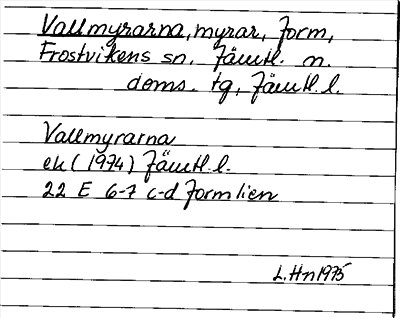 Vallmyrarna, myrar, Jorm,
Frostvikens sn. Jämtl. n.
doms. tg, Jämtl. l.
Vallmyrarna
ek (1974) Jämtl. l.
22 E 6-7 c-d Jormlien
L.Hn 1975